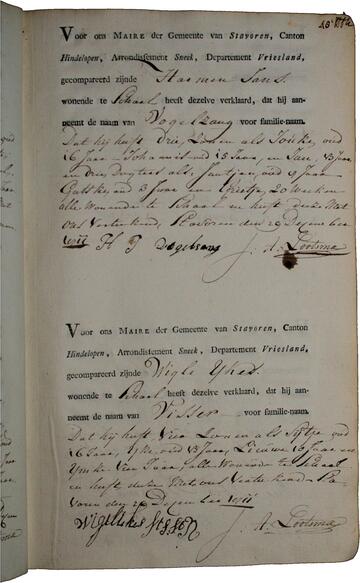 Voor ons MAIRE der Gemeente van Stavoren, Canton
Hindelopen, Arrondissement Sneek, Departement Vriesland,
gecompareerd zijnde Harmen Jans
wonende te Schaal heeft dezelve verklaard, dat hij aan-
neemt de naam van Vogelzang voor familie-naam.
Dat hij heeft Drie Zoonen als Jouke, oud
16 Jaar Johannis oud 15 Jaar, en Jan, 13 Jaar
en Drie Dogters als, oud 9 Jaar
oud 3 Jaar en 20 Weeken
alle Wonende te Schaal en heeft deeze Met
Ons Vertekend, Stavoren den 29 December
1811 H J Vogelsang
J. A. Lootsma
Voor ons MAIRE der Gemeente van Stavoren, Canton
Hindelopen, Arrondissement Sneek, Departement Vriesland,
gecompareerd zijnde Wigle Ykes
wonende te Schaal heeft dezelve verklaard, dat hij aan-
neemt de naam van Visser voor familie-naam.
Dat hij heeft Vier Zoonen als Sijtse oud
16 Jaar, Yke, oud 13 Jaar, Lieuwe 6 Jaar en
Ymke Vier Jaar, alle Wonende te Schaal
en heeft deeze Met ons Vertekend Sta-
voren den 29 December 1811
J. A. Lootsma